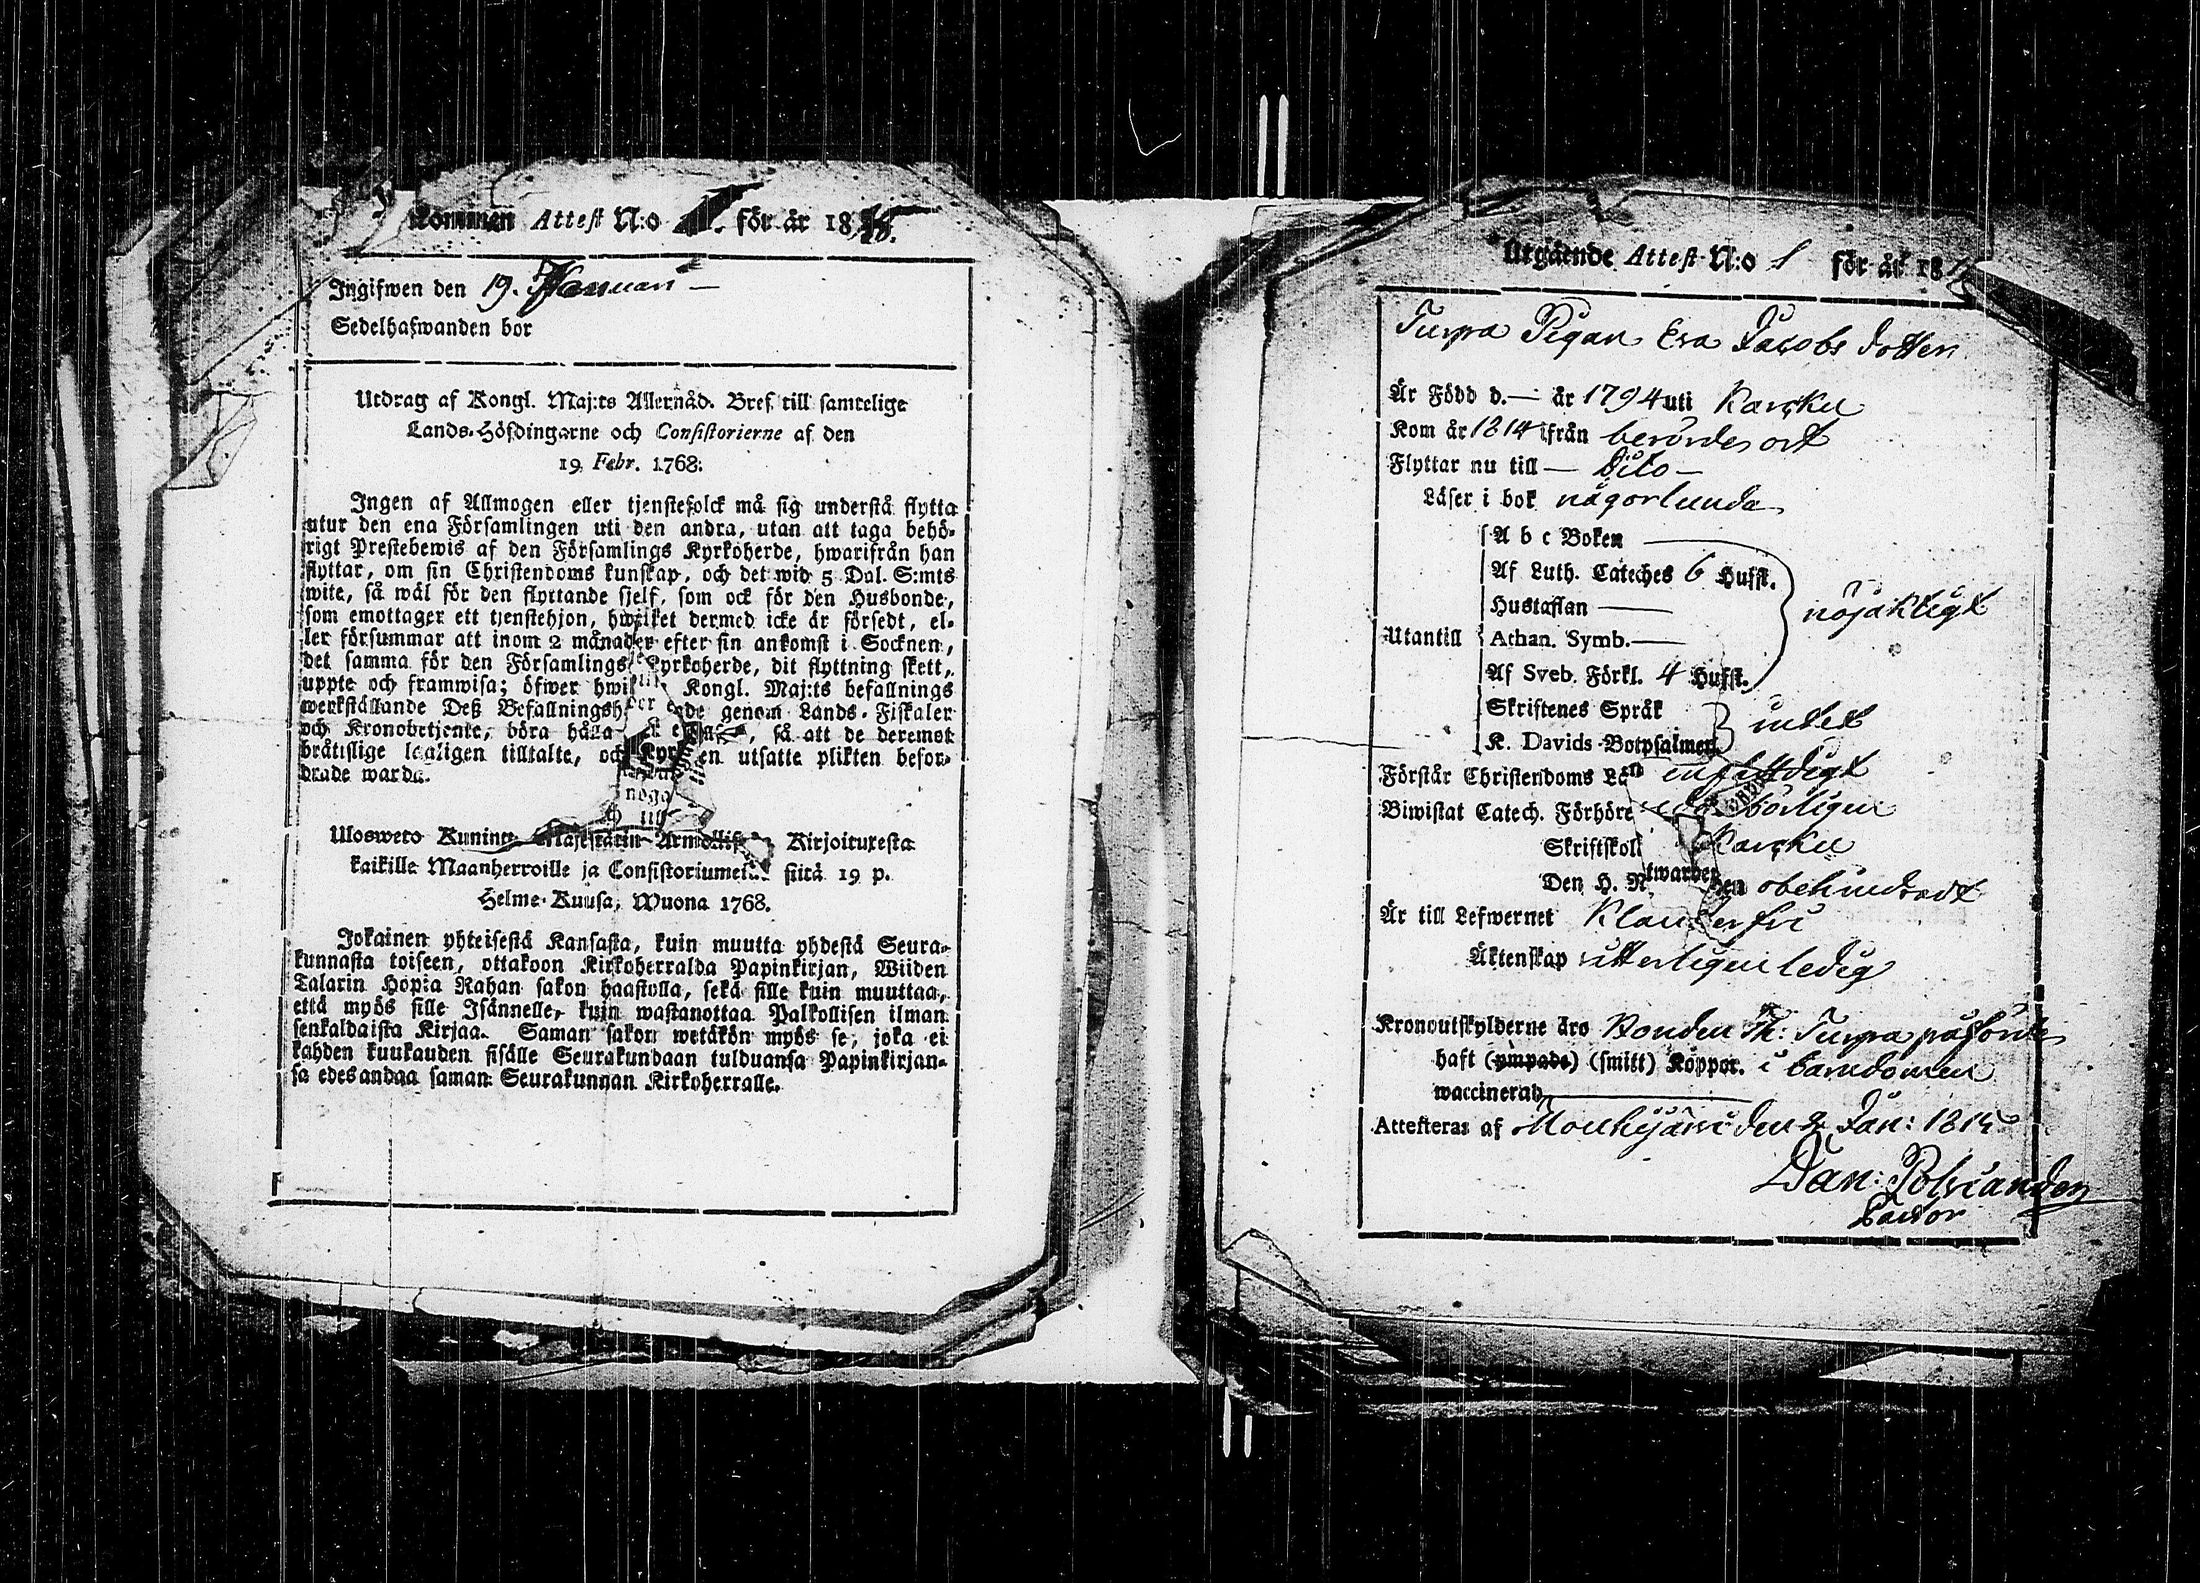 kommen Attest N:o 1. för år 1815.
Ingifwen den 19. Januari
Sedelhafwanden bor
Utdrag af Kongl. Maj:ts Allernåd. Bref till samtelige
Lands-Höfdingarne och Consistorierne af den
19 Febr. 1768:
Ingen af Allmogen eller tjenstefolck må sig understå flytta
utur den ena Församlingen uti den andra, utan att taga behö-
rigt Prestebewis af den Församlings Kyrkoherde, hwarifrån han
flyttar, om sin Christendoms kunskap, och det wid 5 Dal. S:mts
wite, så wäl för den flyttande sjelf, som ock för den Husbonde,
som emottager ett tjenstehjon, hwilket dermed icke är försedt, el-
ler försummar att inom 2 månader efter sin ankomst i Socknen,
det samma för den Församlings Kyrkoherde, dit flyttning skett,
uppte och framwisa; öfwer hwilk Kongl. Maj:ts befallnings
werkställande Deß Befallningsh de genom Lands-Fiskaler
och Kronobetjente, böra hålla , så att de deremot
bråtislige lagligen tilltalte, och en utsatte plikten befor-
drade warda.
Ulosweto Kuning Majestätin Armollis Kirjoituxesta
kaikille Maanherroille ja Consistoriumei siitä 19 p.
Helme-Kuusa, Wuona 1768.
Jokainen yhteisestä Kansasta, kuin muutta yhdestä Seura-
kunnasta toiseen, ottakoon Kirkoherralda Papinkirjan, Wiiden
Talarin Hopia Rahan sakon haastolla, sekä sille kuin muuttaa,
että myös sille Isännelle, kuin wastanottaa Palkollisen ilman
senkaldaista Kirjaa. Saman sakon wetäkön myös se, joka ei
kahden kuukauden sisälle Seurakundaan tulduansa Papinkirjan-
sa edesandaa saman Seurakunnan Kirkoherralle.
Utgående Attest N:o 1 för år 181
Turpa Pigan Eva Jacobs dotter
Är Född d. — år 1794 uti Karcku
Kom år 1814 ifrån berörde ort
Flyttar nu till — dito —
Läser i bok någorlunda
A b c Boken
Af Luth. Cateches 6 Hufst.
Hustaflan
nöjaktigt
Utantill Athan. Symb.
Af Sveb. Förkl. 4 Hufst.
Skriftenes Språk
intet
K. Davids Botpsalmer
Förstår Christendoms Lä enfalldigt
Biwistat Catech. Förhöre börligen
Skriftskol Karcku
Den H. N obehindradt
Är till Lefwernet Klanderfri
Äktenskap ytterligen ledig
Kronoutskylderne äro Bonden Th: Turpa påförde
haft (ympade) (smitt) Koppor. i barndomen
waccinerad
Attesteras af Mouhijärvi den 2 Jan: 1815
Dan: Polviander
Pastor